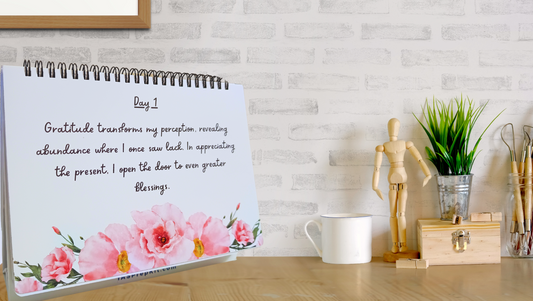 Day 1
Gratitude transforms my perception, revealing
abundance where I once saw lack. In appreciating
the present, I open the door to even greater
blessings.